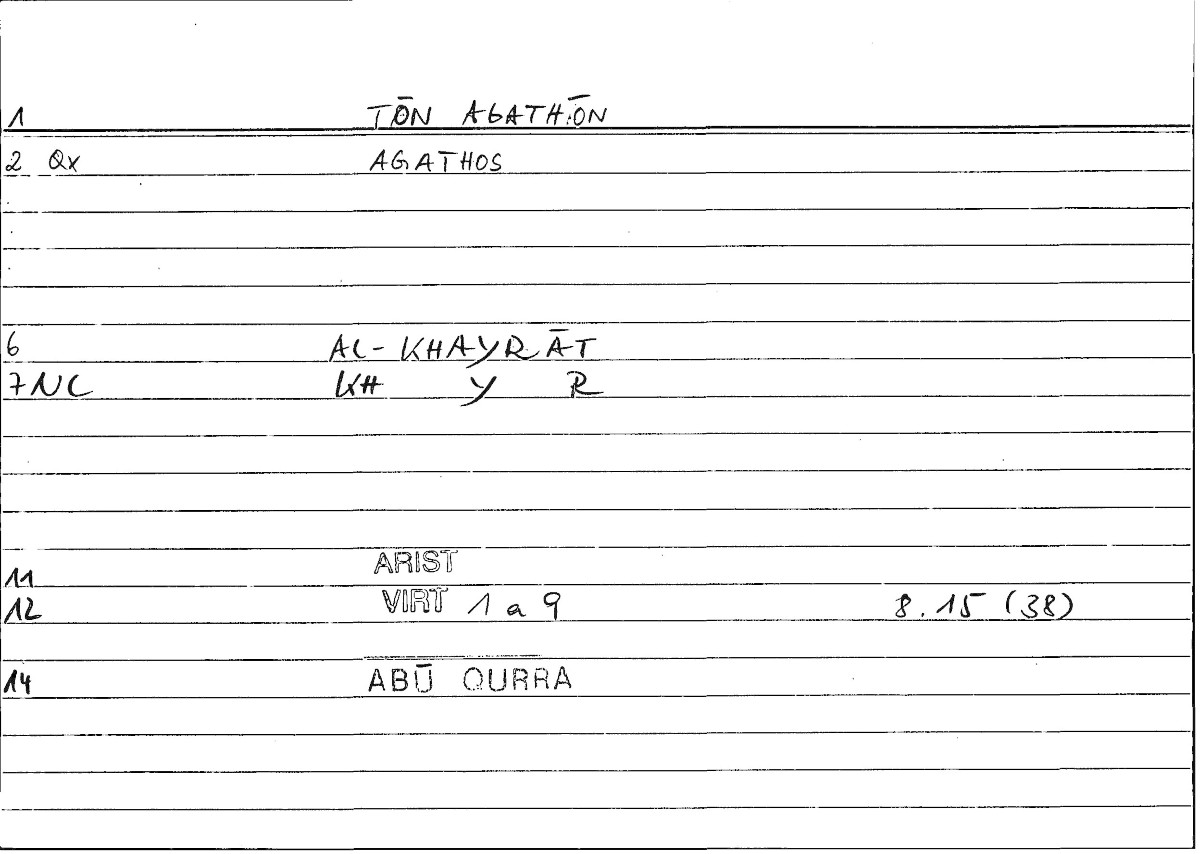 1 TŌN AGATHŌN
2 Qx AGATHOS
6 AL-KHAYRĀT
7 NC KH Y R
11 ARIST
12 VIRT 1 a 9 8.15 (38)
14 ABŪ QURRA